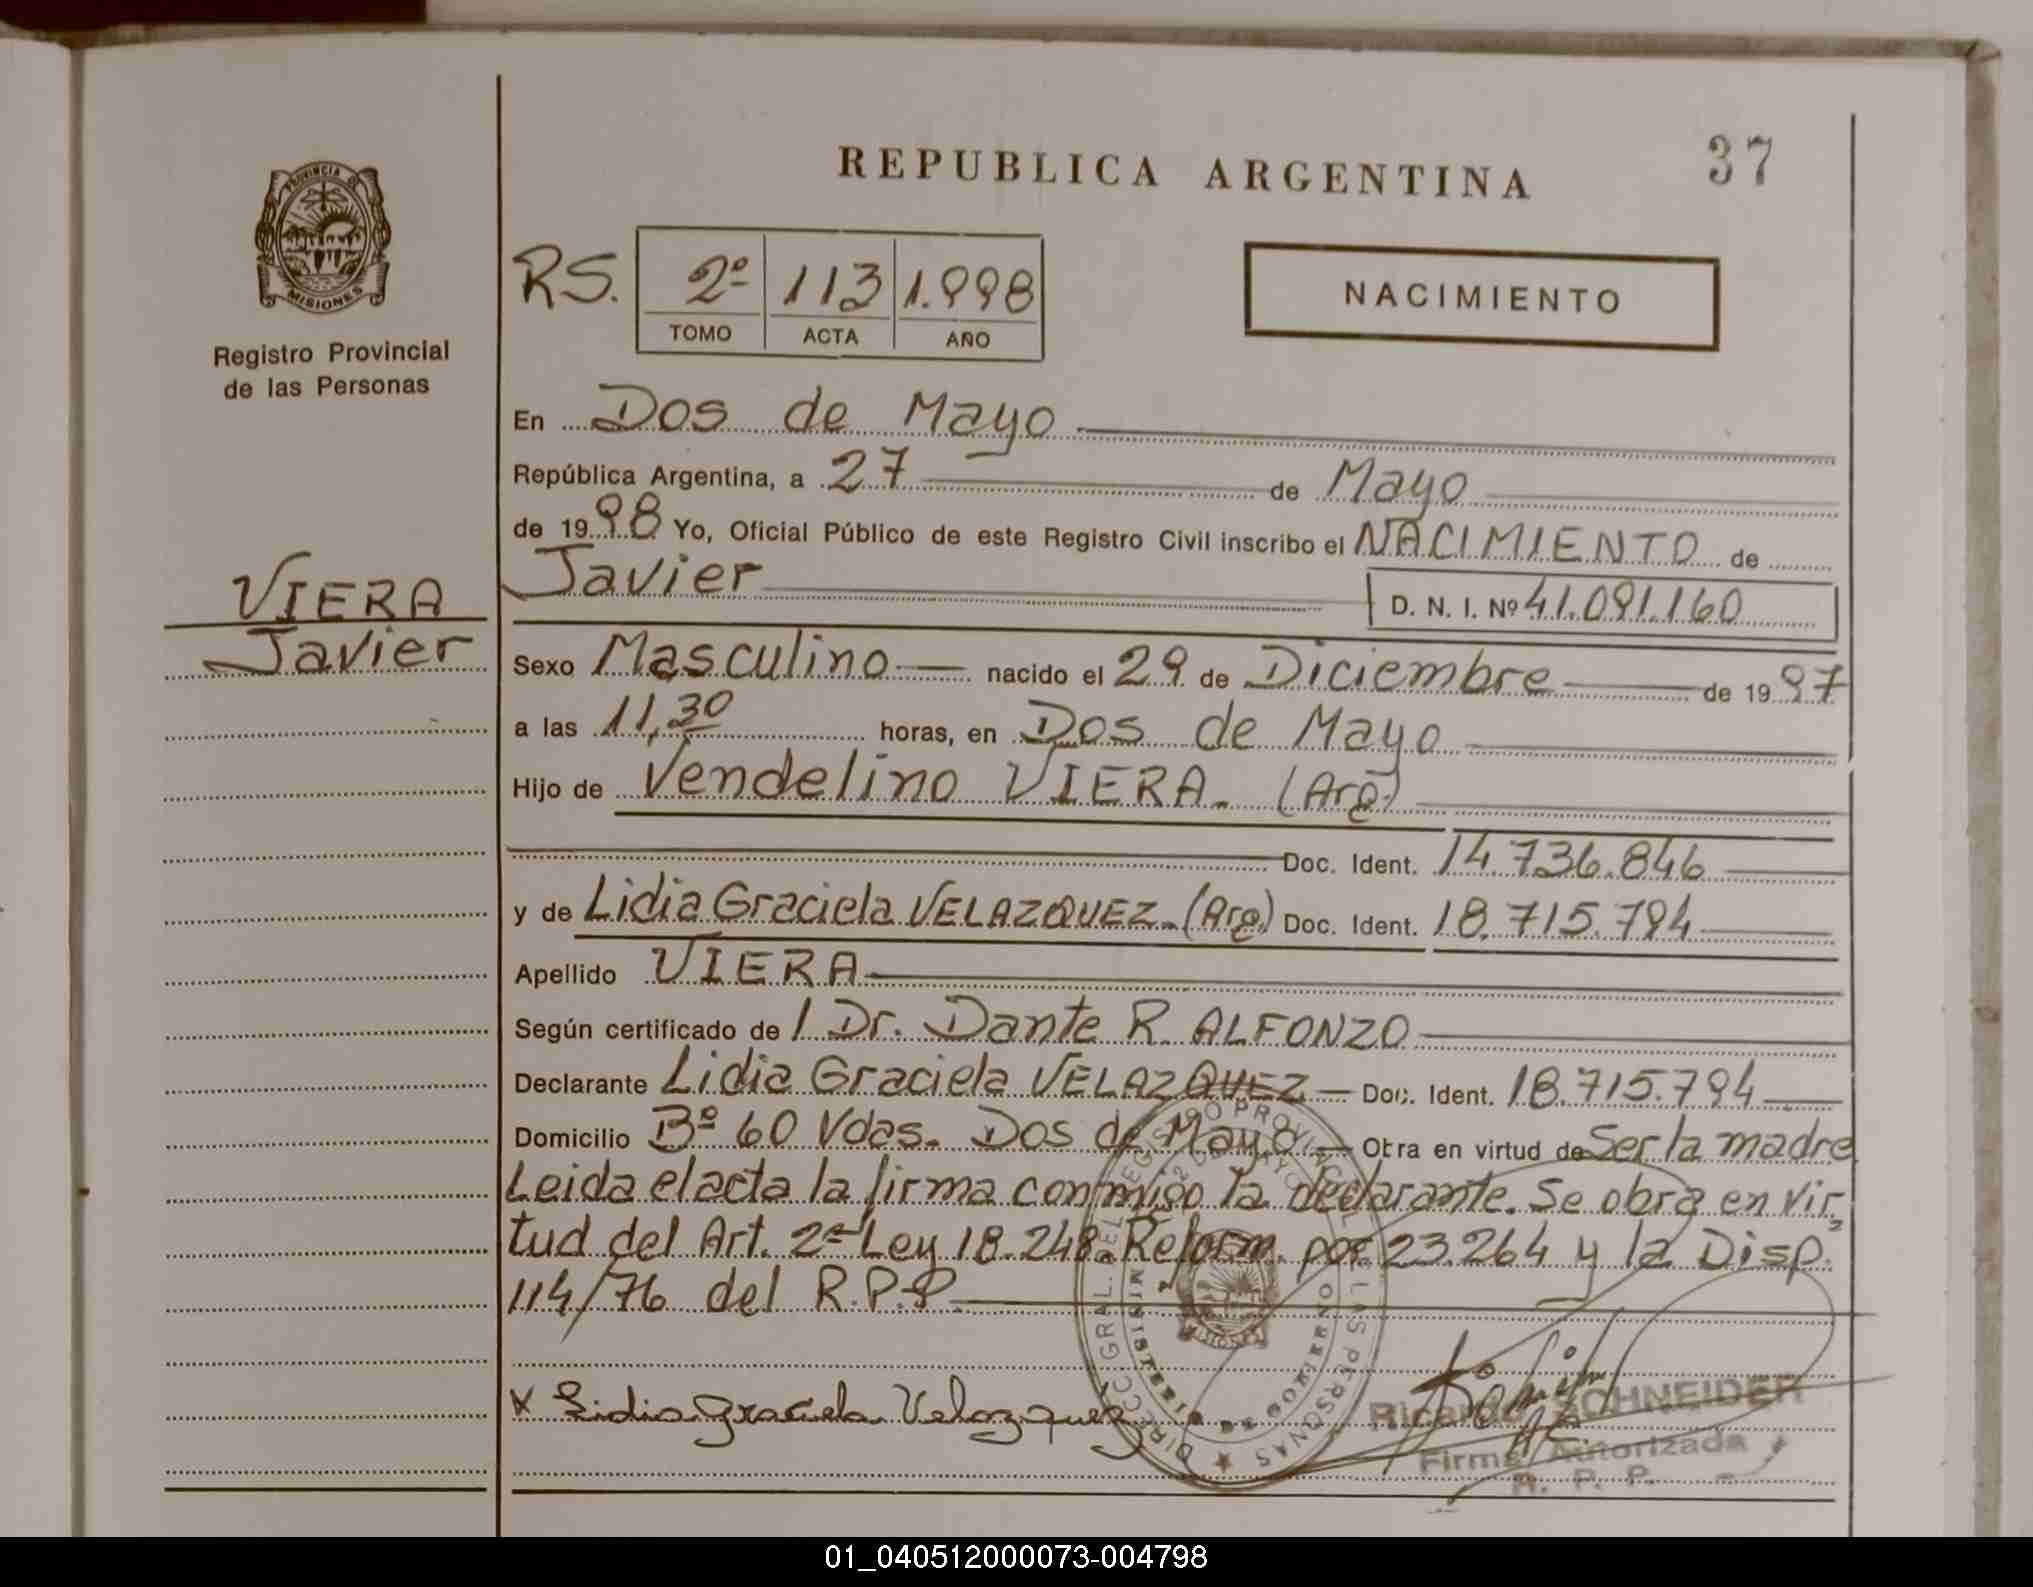 REPUBLICA ARGENTINA
37
PROVINCIA DE
MISIONES
Registro Provincial
de las Personas
RS. 2º 113 1.998
TOMO ACTA AÑO
NACIMIENTO
En Dos de Mayo
República Argentina, a 27 de Mayo
de 1998 Yo, Oficial Público de este Registro Civil inscribo el NACIMIENTO de
Javier
D. N. I. Nº 41.091.160
VIERA
Javier
Sexo Masculino nacido el 29 de Diciembre de 1997
a las 11,30 horas, en Dos de Mayo
Hijo de Vendelino VIERA. (Arg.)
Doc. Ident. 14.736.846
y de Lidia Graciela VELAZQUEZ. (Arg.) Doc. Ident. 18.715.794
Apellido VIERA
Según certificado de / Dr. Dante R. ALFONZO
Declarante Lidia Graciela VELAZQUEZ Doc. Ident. 18.715.794
Domicilio Bº 60 Vdas. Dos de Mayo Obra en virtud de Ser la madre
Leida el acta la firma conmigo la declarante. Se obra en vir
tud del Art. 2º Ley 18.248. Reform. por 23.264 y la Disp.
114/76 del R.P.P.
x Lidia Graciela Velazquez
DIRECC. GRAL. DEL REGISTRO PROVINCIAL DE LAS PERSONAS
2 DE MAYO
MINISTERIO DE GOBIERNO
MISIONES
Ricardo SCHNEIDER
Firma Autorizada
R. P. P.
01_040512000073-004798